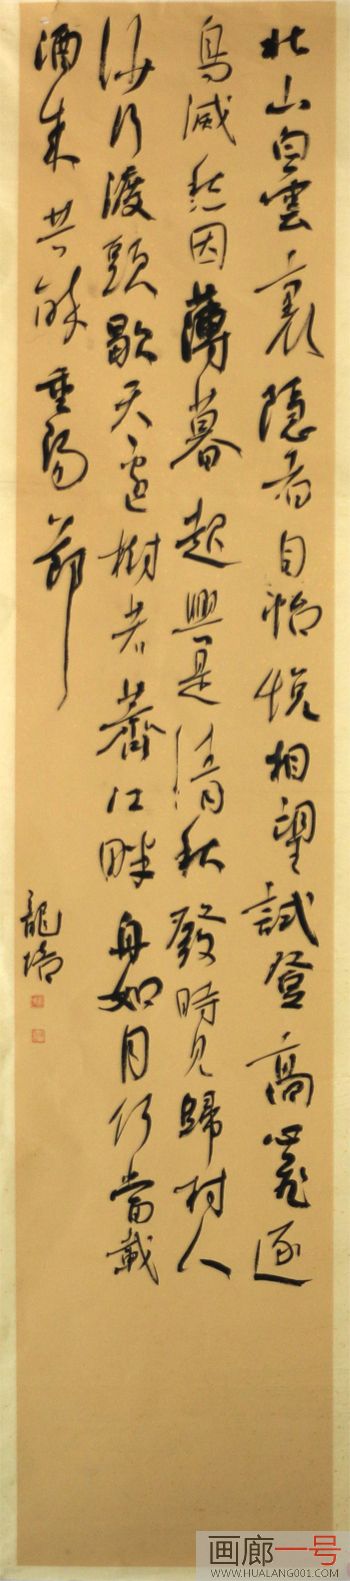 北山白雲裏隱者自怡悅相望試登高心飛逐
鳥滅愁因薄暮起興是清秋發時見歸村人
沙行渡頭歇天邊樹若薺江畔舟如月何當載
酒來共醉重陽節
龍瑞
画廊一号
WWW.HUALANG001.COM